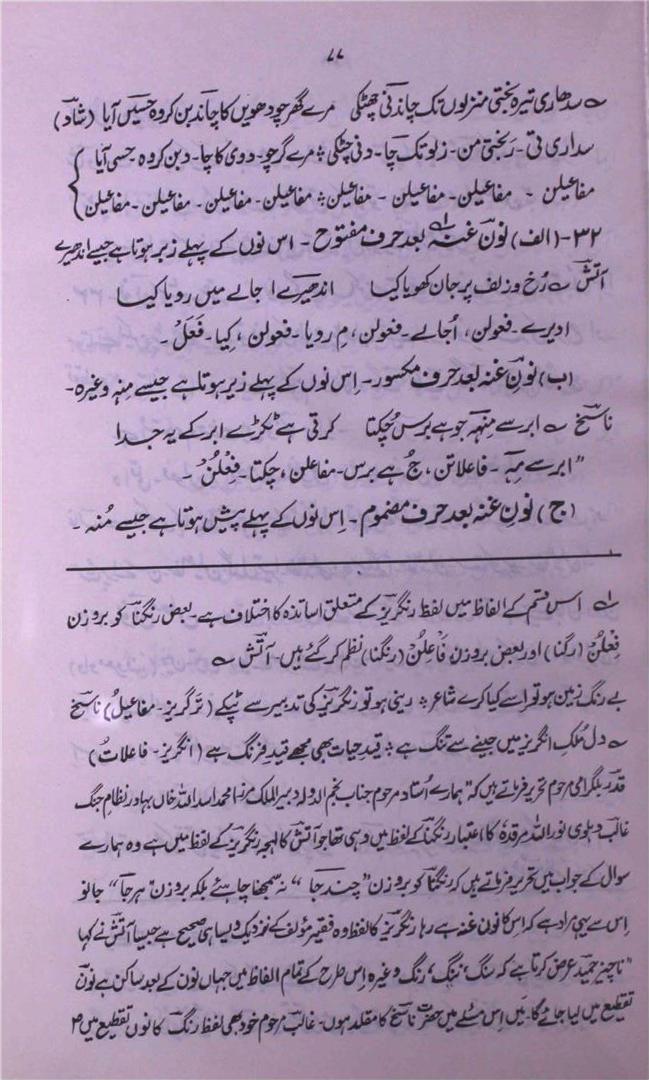 ۷۷
سدھاری تیرہ بختی منزلوں تک چاندنی چھٹکی مرے گھر چودھویں کا چاند بن کر وہ حسیں آیا (شاد)
سداری تی۔ رَبختی من۔ زلو تک چا۔ دنی چٹکی؛ مرے گر چو۔ دوی کا چا۔ دبن کر وہ حسی آیا
مفاعیلن ۔ مفاعیلن ۔ مفاعیلن ۔ مفاعیلن؛ مفاعیلن ۔ مفاعیلن ۔ مفاعیلن ۔ مفاعیلن
۳۲-(الف) نونِ غنہ ۱ بعد حرف مفتوح ۔ اس نوں کے پہلے زبر ہوتا ہے جیسے اندھیرے
آتش رُخ و زلف پر جان کھویا کیا اندھیرے اجالے میں رویا کیا
ادیرے ۔ فعولن، اُجالے ۔ فعولن، مِ رویا ۔ فعولن، کیا ۔ فَعَلْ ۔
(ب) نونِ غنہ بعد حرف مکسور۔ اِس نوں کے پہلے زیر ہوتا ہے جیسے مِنہ وغیرہ۔
ناسخ ابر سے مِنہہ جو ہے برس چُکتا کرتی ہے ٹکڑے ابر کے یہ جدا
"ابر سے مِہ ۔ فاعلاتن، جُ ہے برس ۔ مفاعلن، چکتا ۔ فِعْلُنْ ۔
(ج) نونِ غنہ بعد حرف مضموم ۔ اِس نوں کے پہلے پیش ہوتا ہے جیسے مُنہ ۔
۱ اس قسم کے الفاظ میں لفظ رنگریز کے متعلق اساتذہ کا اختلاف ہے۔ بعض رنگنا کو بروزن
فِعْلُنْ (رگنا) اور بعض بروزن فاعِلُنْ (رنگنا) نظم کر گئے ہیں۔ آتش
بے رنگ زمین ہو تو اسے کیا کرے شاعر؛ رینی ہو تو رنگریز کی تدبیر سے ٹپکے (رَگریز۔ مفاعیلُ) ناسخ
دل مُلکِ انگریز میں جینے سے تنگ ہے؛ قیدِ حیات بھی مجھے قیدِ فرنگ ہے (انگریز۔ فاعلاتُ)
قدر بلگرامی مرحوم تحریر فرماتے ہیں کہ "ہمارے اُستاد مرحوم جناب نجم الدولہ دبیر الملک مرزا محمد اسد اللہ خاں بہادر نظام جنگ
غالب دہلوی نور اللہ مرقدہٗ کا اعتبار رنگنا کے لفظ میں وہی تھا جو آتش کا لہجہ رنگریز کے لفظ میں ہے وہ ہمارے
سوال کے جواب میں تحریر فرماتے ہیں کہ رنگنا کو بروزن "چند جا" نہ سمجھنا چاہئے بلکہ بروزن "ہر جا" جانو
اِس سے یہی مراد ہے کہ اِس کا نون غنہ ہے رہا رنگریز کا لفظ وہ فقیر مؤلف کے نزدیک ویسا ہی صحیح ہے جیسا آتش نے کہا
"ناچیز حمید عرض کرتا ہے کہ سنگ، ننگ، رنگ وغیرہ اِس طرح کے تمام الفاظ میں جہاں نون کے بعد ساکن ہے نون
تقطیع میں لیا جائے گا۔ میں اِس مسئلے میں حضرت ناسخ کا مقلد ہوں۔ غالب مرحوم خود بھی لفظ رنگ کا نوں تقطیع میں